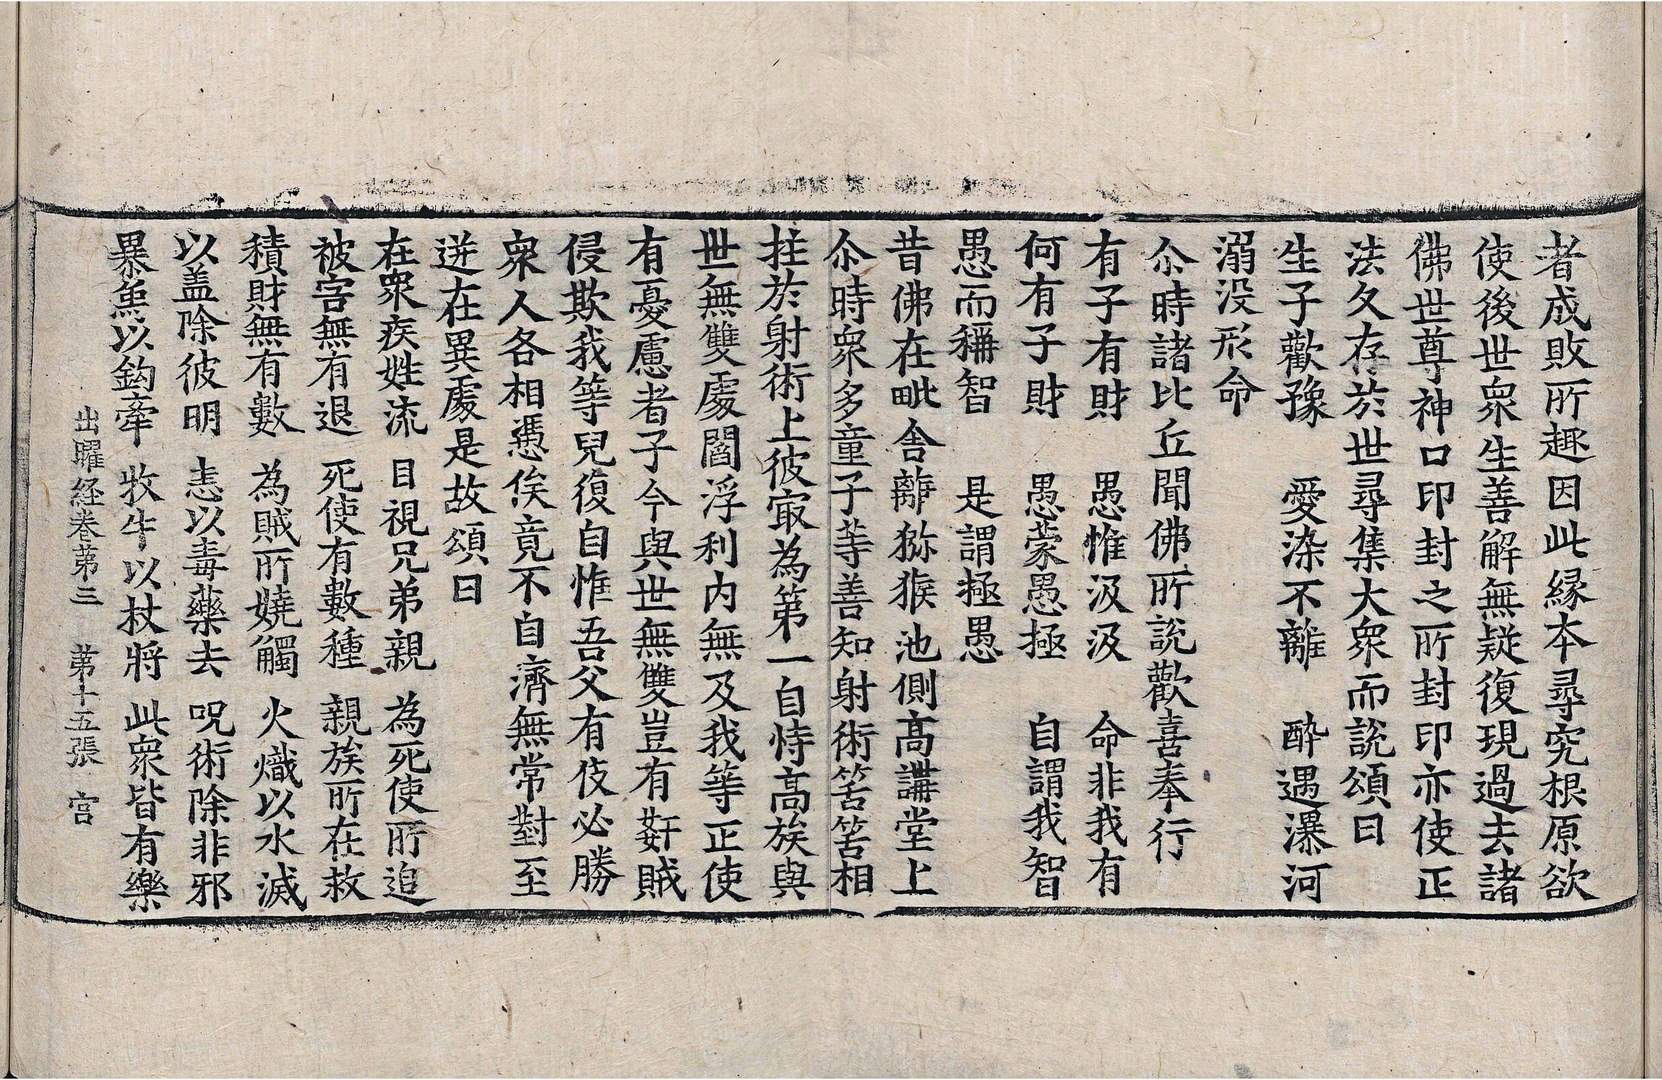 者成敗所趣因此縁本尋究根原欲
使後世衆生善解無疑復現過去諸
佛世尊神口印封之所封印亦使正
法久存於世尋集大衆而說頌曰
生子歡豫　愛染不離　醉遇瀑河
溺没形命
尒時諸比丘聞佛所說歡喜奉行
有子有財　愚惟汲汲　命非我有
何有子財　愚蒙愚極　自謂我智
愚而稱智　是謂極愚
昔佛在毗舎離獼猴池側髙講堂上
尒時衆多童子䓁善知射術筈筈相
拄於射術上彼㝡為第一自恃髙族與
世無雙䖏閻浮利内無及我等正使
有憂慮者子今與世無雙豈有姧賊
侵欺我等兒復自惟吾父有伎必勝
衆人各相憑俟竟不自濟無常對至
迸在異䖏是故頌曰
在衆疾姓流　目視兄弟親　為死使所追
被害無有退　死使有數種　親族所在救
積財無有數　為賊所嬈觸　火熾以水滅
以盖除彼明　恚以毒藥去　呪術除非邪
暴𤋲以鈎牽　牧牛以杖將　此衆皆有藥
出曜経卷苐三　苐十五張　宫